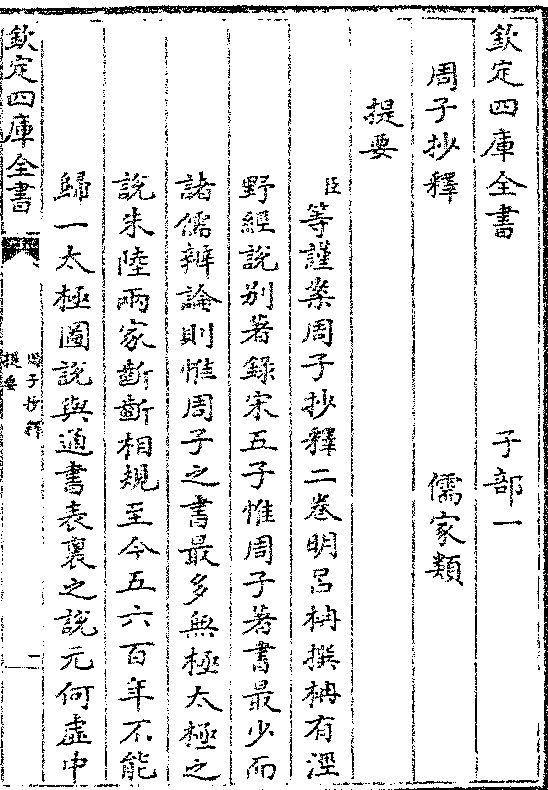 欽定四庫全書 子部一
周子抄釋 儒家類
提要
臣等謹案周子抄釋二卷明呂柟撰柟有涇
野經說别著錄宋五子惟周子著書最少而
諸儒辨論則惟周子之書最多無極太極之
說朱陸兩家齗齗相規至今五六百年不能
歸一太極圖說與通書表裏之說元何虛中
欽定四庫全書 周子抄釋 提要 一